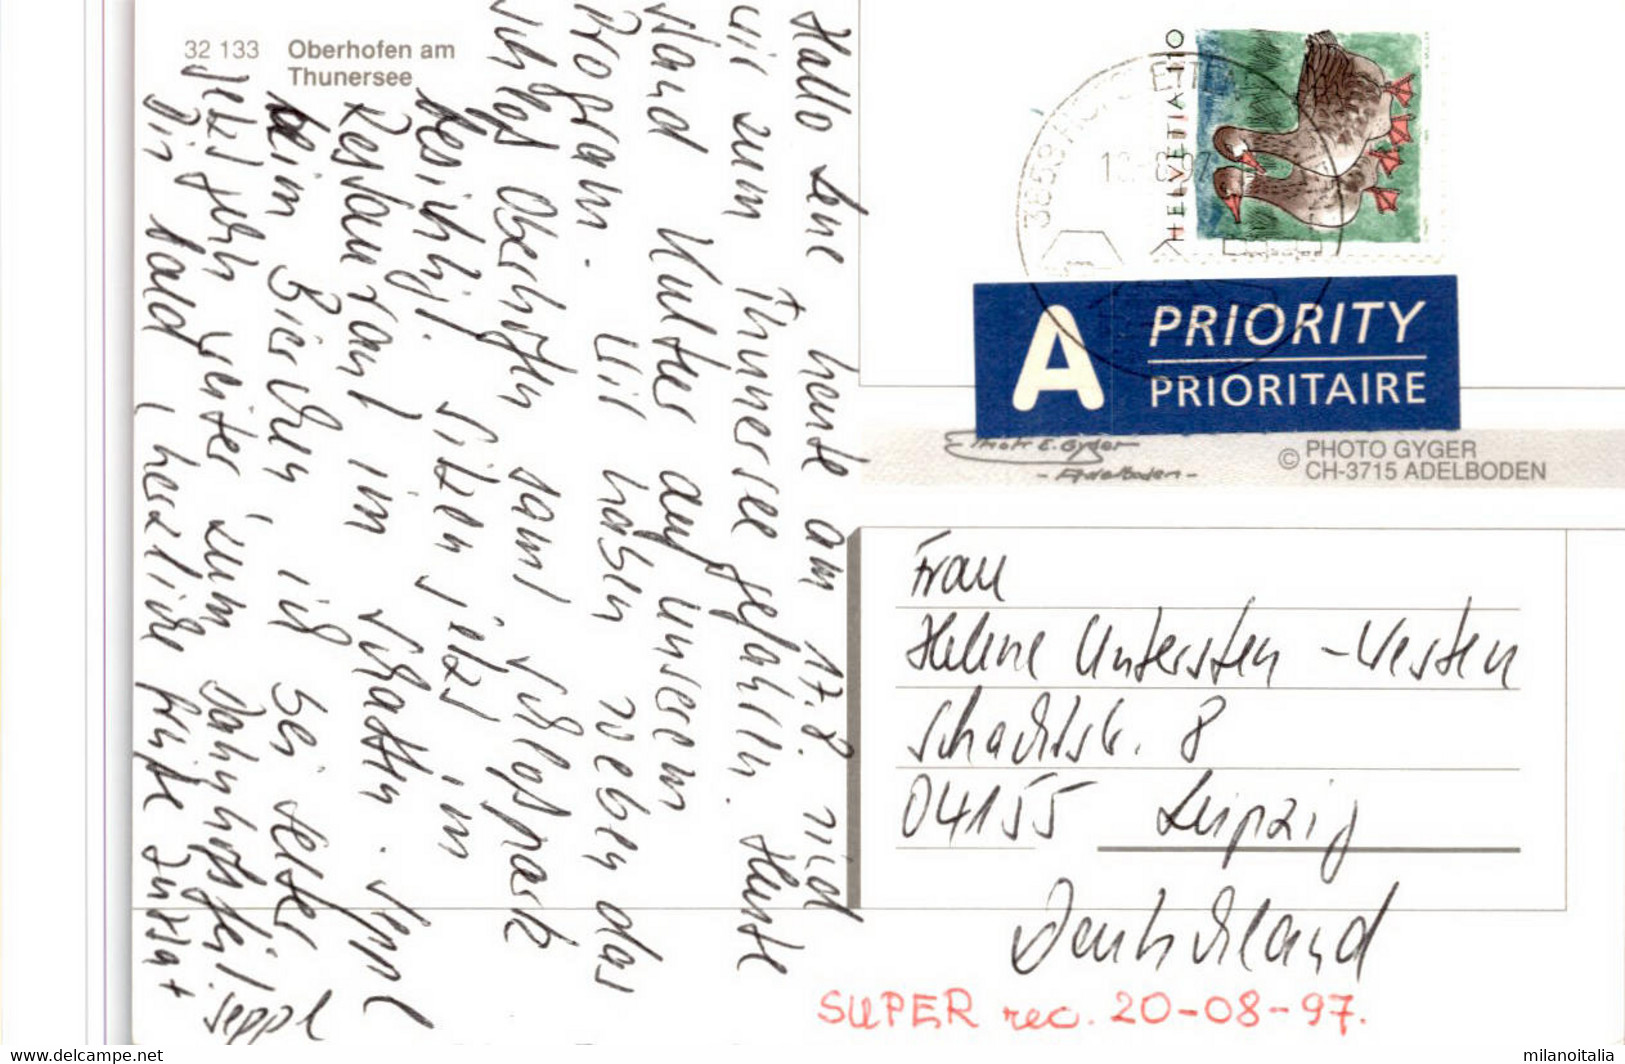 32 133 Oberhofen am
Thunersee
Hallo Lene heute am 17.8. sind
wir zum Thunersee gefahren. Heute
stand Kultur auf unserem
Programm. Wir haben soeben das
Schloß Oberhofen samt Schloßpark
besichtigt. Sitzen jetzt im
Restaurant im Schatten. Seppl
beim Bierchen, ich bei Selter
Jetzt gehts weiter, zum Bahnhofsfest.
Bis bald, herzliche Grüße Jutta +
Seppl
HELVETIA 110
3659
18.-8.97
A PRIORITY
PRIORITAIRE
Photo E. Gyger
- Adelboden -
© PHOTO GYGER
CH-3715 ADELBODEN
Frau
Helene Untersten-Westen
Schachtstr. 8
04155 Leipzig
Deutschland
SUPER rec. 20-08-97.
www.delcampe.net
milanoitalia